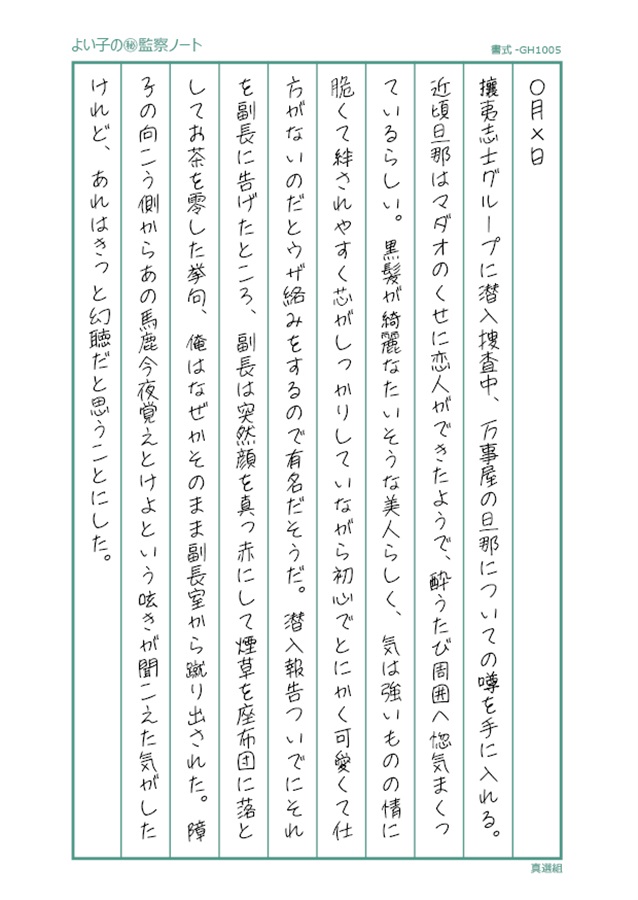 よい子の㊙監察ノート
書式-GH1005
〇月×日
攘夷志士グループに潜入捜査中、万事屋の旦那についての噂を手に入れる。
近頃旦那はマダオのくせに恋人ができたようで、酔うたび周囲へ惚気まくっ
ているらしい。黒髪が綺麗なたいそうな美人らしく、気は強いものの情に
脆くて絆されやすく芯がしっかりしていながら初心でとにかく可愛くて仕
方がないのだとウザ絡みをするので有名だそうだ。潜入報告ついでにそれ
を副長に告げたところ、副長は突然顔を真っ赤にして煙草を座布団に落と
してお茶を零した挙句、俺はなぜかそのまま副長室から蹴り出された。障
子の向こう側からあの馬鹿今夜覚えとけよという呟きが聞こえた気がした
けれど、あれはきっと幻聴だと思うことにした。
真選組